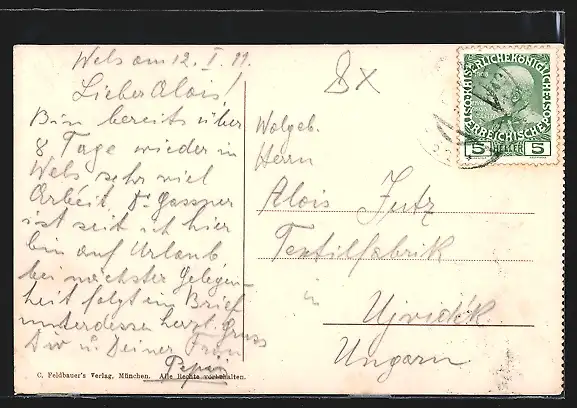 Wels am 12. I. 11.
Lieber Alois!
Bin bereits über
8 Tage wieder in
Wels sehr viel
Arbeit. Dr. Gassner
ist seit ich hier
bin auf Urlaub
bei nächster Gelegen-
heit folgt ein Brief
unterdessen herzl. Gruss
Dir u. Deiner
Pepi
C. Feldbauer's Verlag, München. Alle Rechte vorbehalten.
8x
Wolgeb.
Herrn
Alois Jutz
Textilfabrik
in
Ujvidék
Ungarn
KAISERLICHE KÖNIGLICHE
ÖSTERREICHISCHE
1908
5 HELLER 5